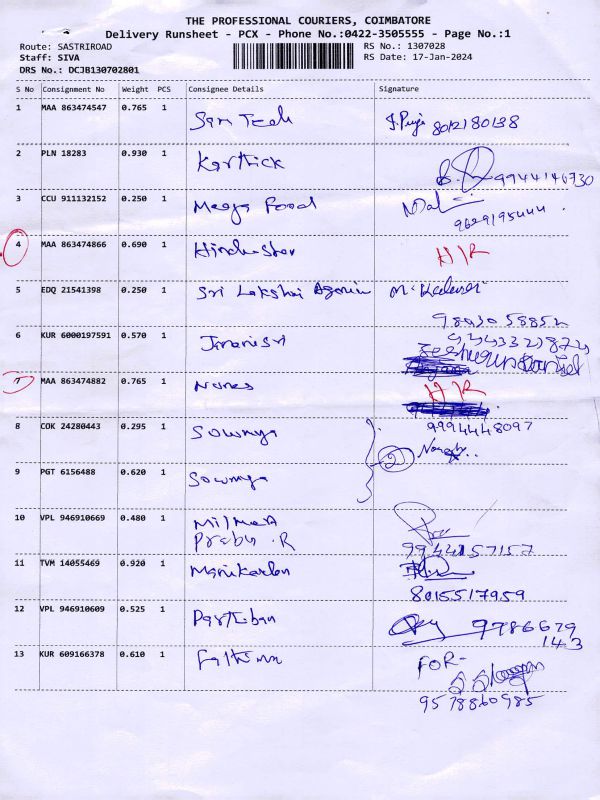 THE PROFESSIONAL COURIERS, COIMBATORE
Delivery Runsheet - PCX - Phone No.:0422-3505555 - Page No.:1
Route: SASTRIROAD RS No.: 1307028
Staff: SIVA RS Date: 17-Jan-2024
DRS No.: DCJB130702801
S No Consignment No Weight PCS Consignee Details Signature
1 MAA 863474547 0.765 1 8012180138
2 PLN 18283 0.930 1 Karthick 9944146730
3 CCU 911132152 0.250 1 Mega Food 9629195444
4 MAA 863474866 0.690 1 H/R
5 EDQ 21541398 0.250 1 Sri
6 KUR 6000197591 0.570 1
7 MAA 863474882 0.765 1 H/R
8 COK 24280443 0.295 1 Sowmya 9994448097
2
9 PGT 6156488 0.620 1 Sowmya
10 VPL 946910669 0.480 1
Prabu .R 9944157157
11 TVM 14055469 0.920 1
8015517959
12 VPL 946910609 0.525 1 Parthiban 9786679
143
13 KUR 609166378 0.610 1 Fathima FOR-
9578860985